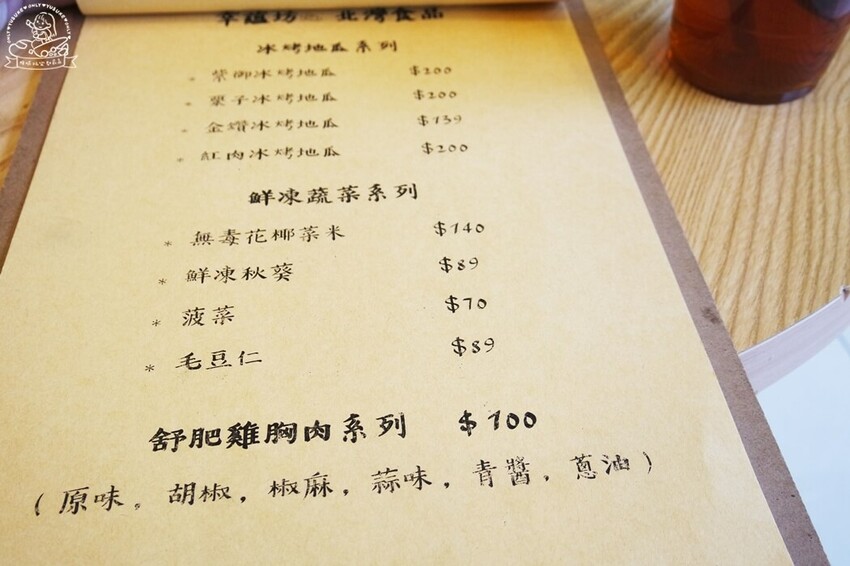 幸蘊坊 北灣食品
冰烤地瓜系列
紫御冰烤地瓜 $200
栗子冰烤地瓜 $200
金鑽冰烤地瓜 $139
紅肉冰烤地瓜 $200
鮮凍蔬菜系列
* 無毒花椰菜米 $140
* 鮮凍秋葵 $89
* 菠菜 $70
* 毛豆仁 $89
舒肥雞胸肉系列 $100
(原味, 胡椒, 椒麻, 蒜味, 青醬, 蔥油)